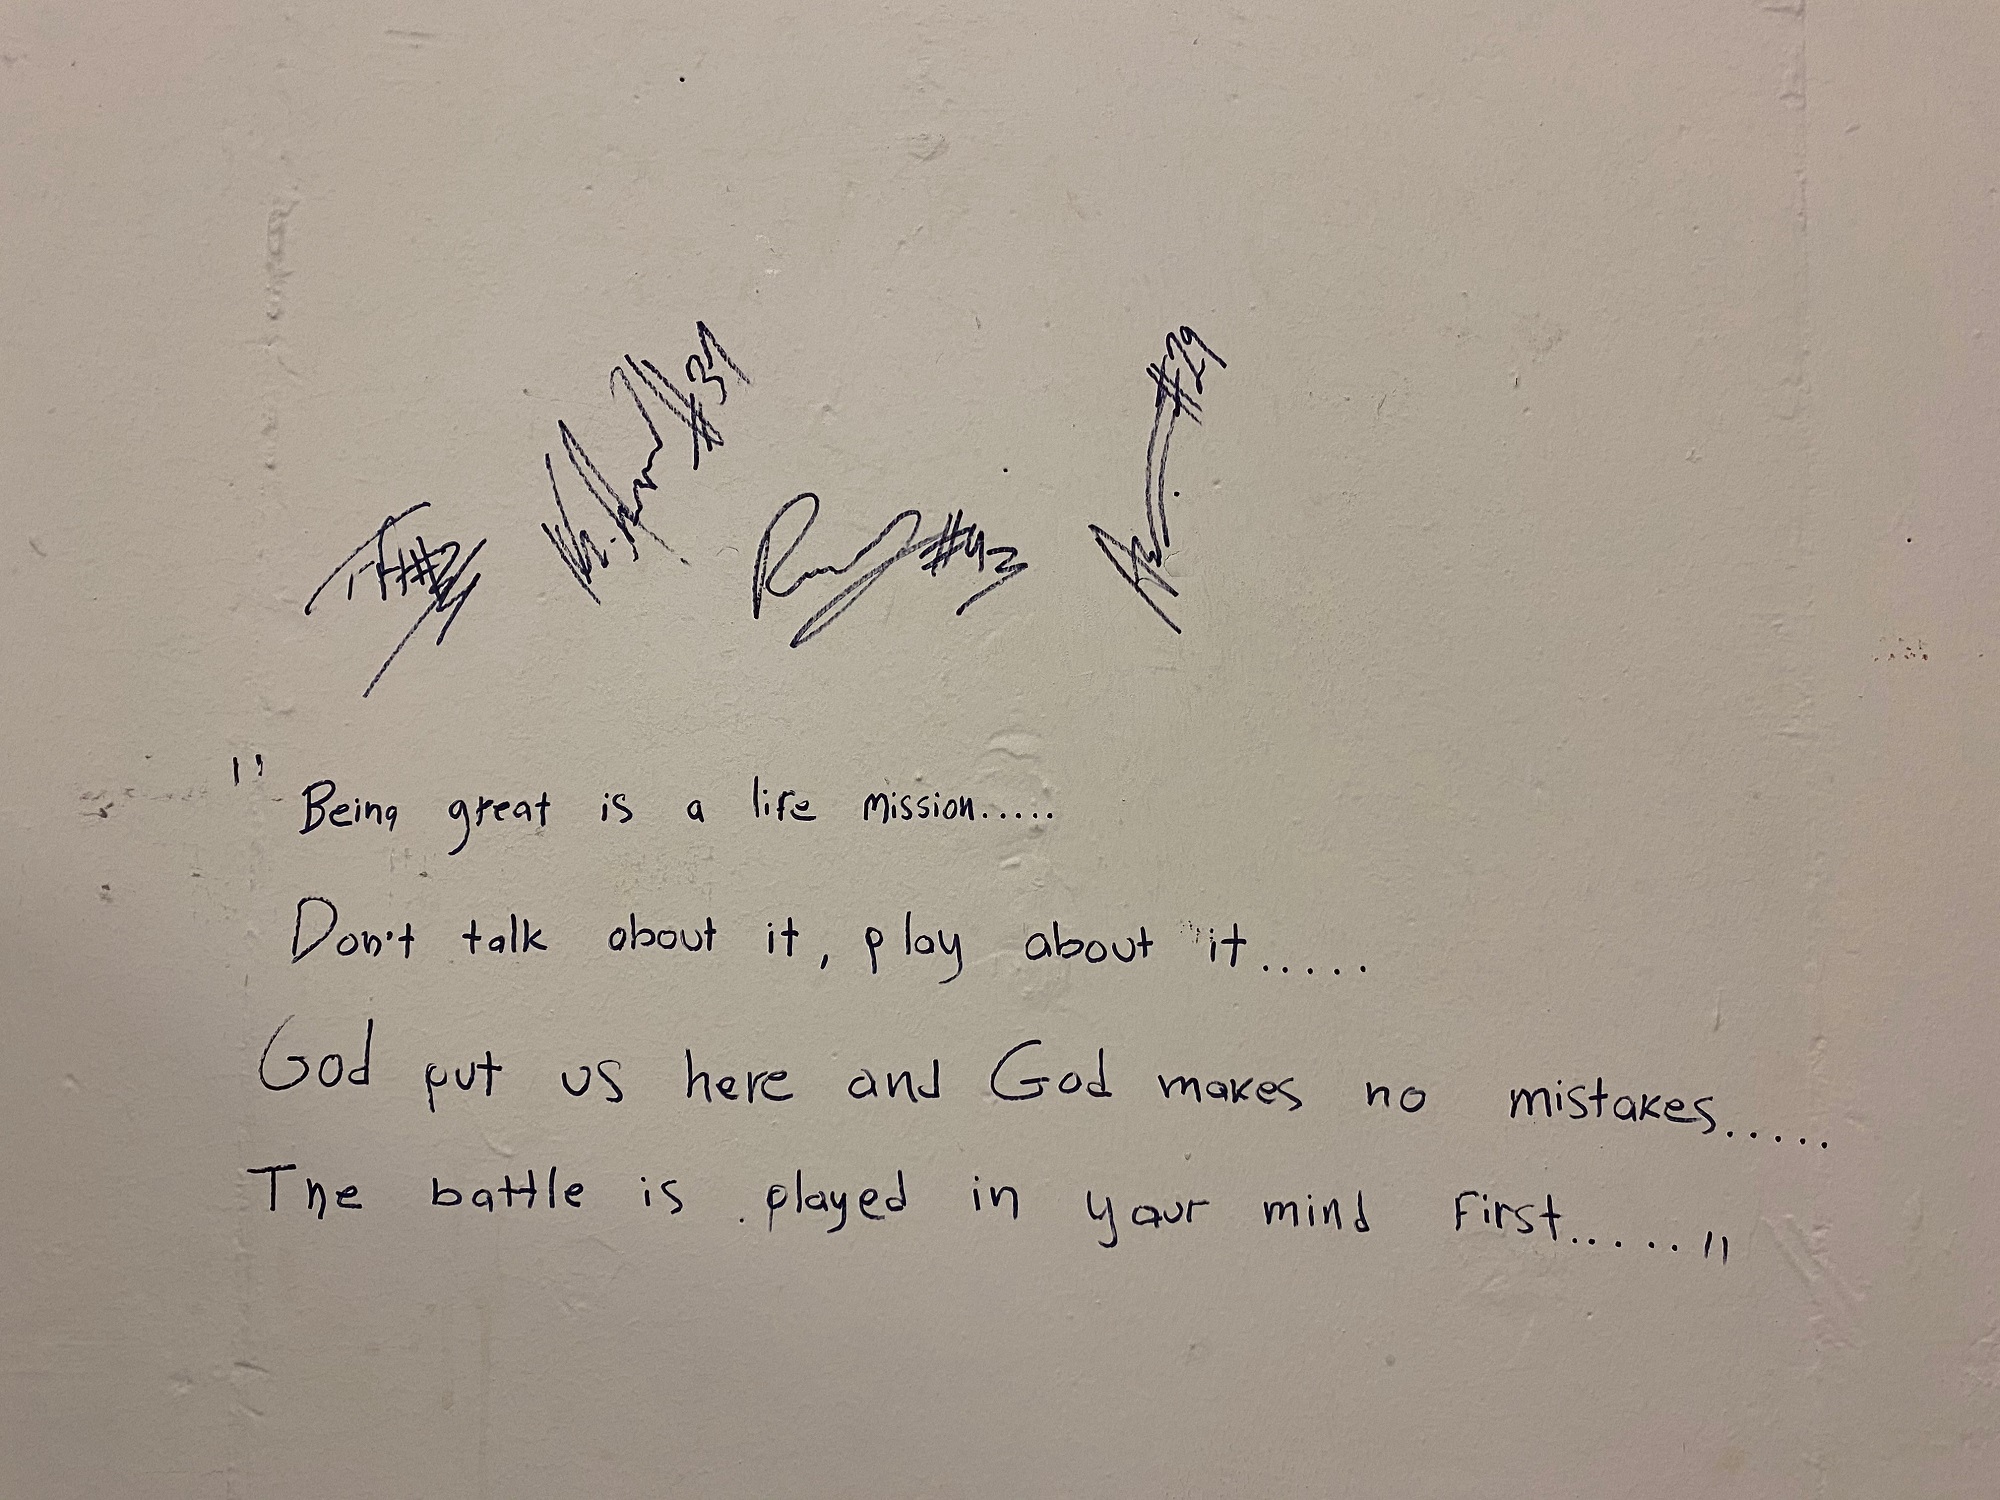 #37
#29
#43
" Being great is a life mission.....
Don't talk about it, play about it.....
God put us here and God makes no mistakes.....
The battle is played in your mind first....."